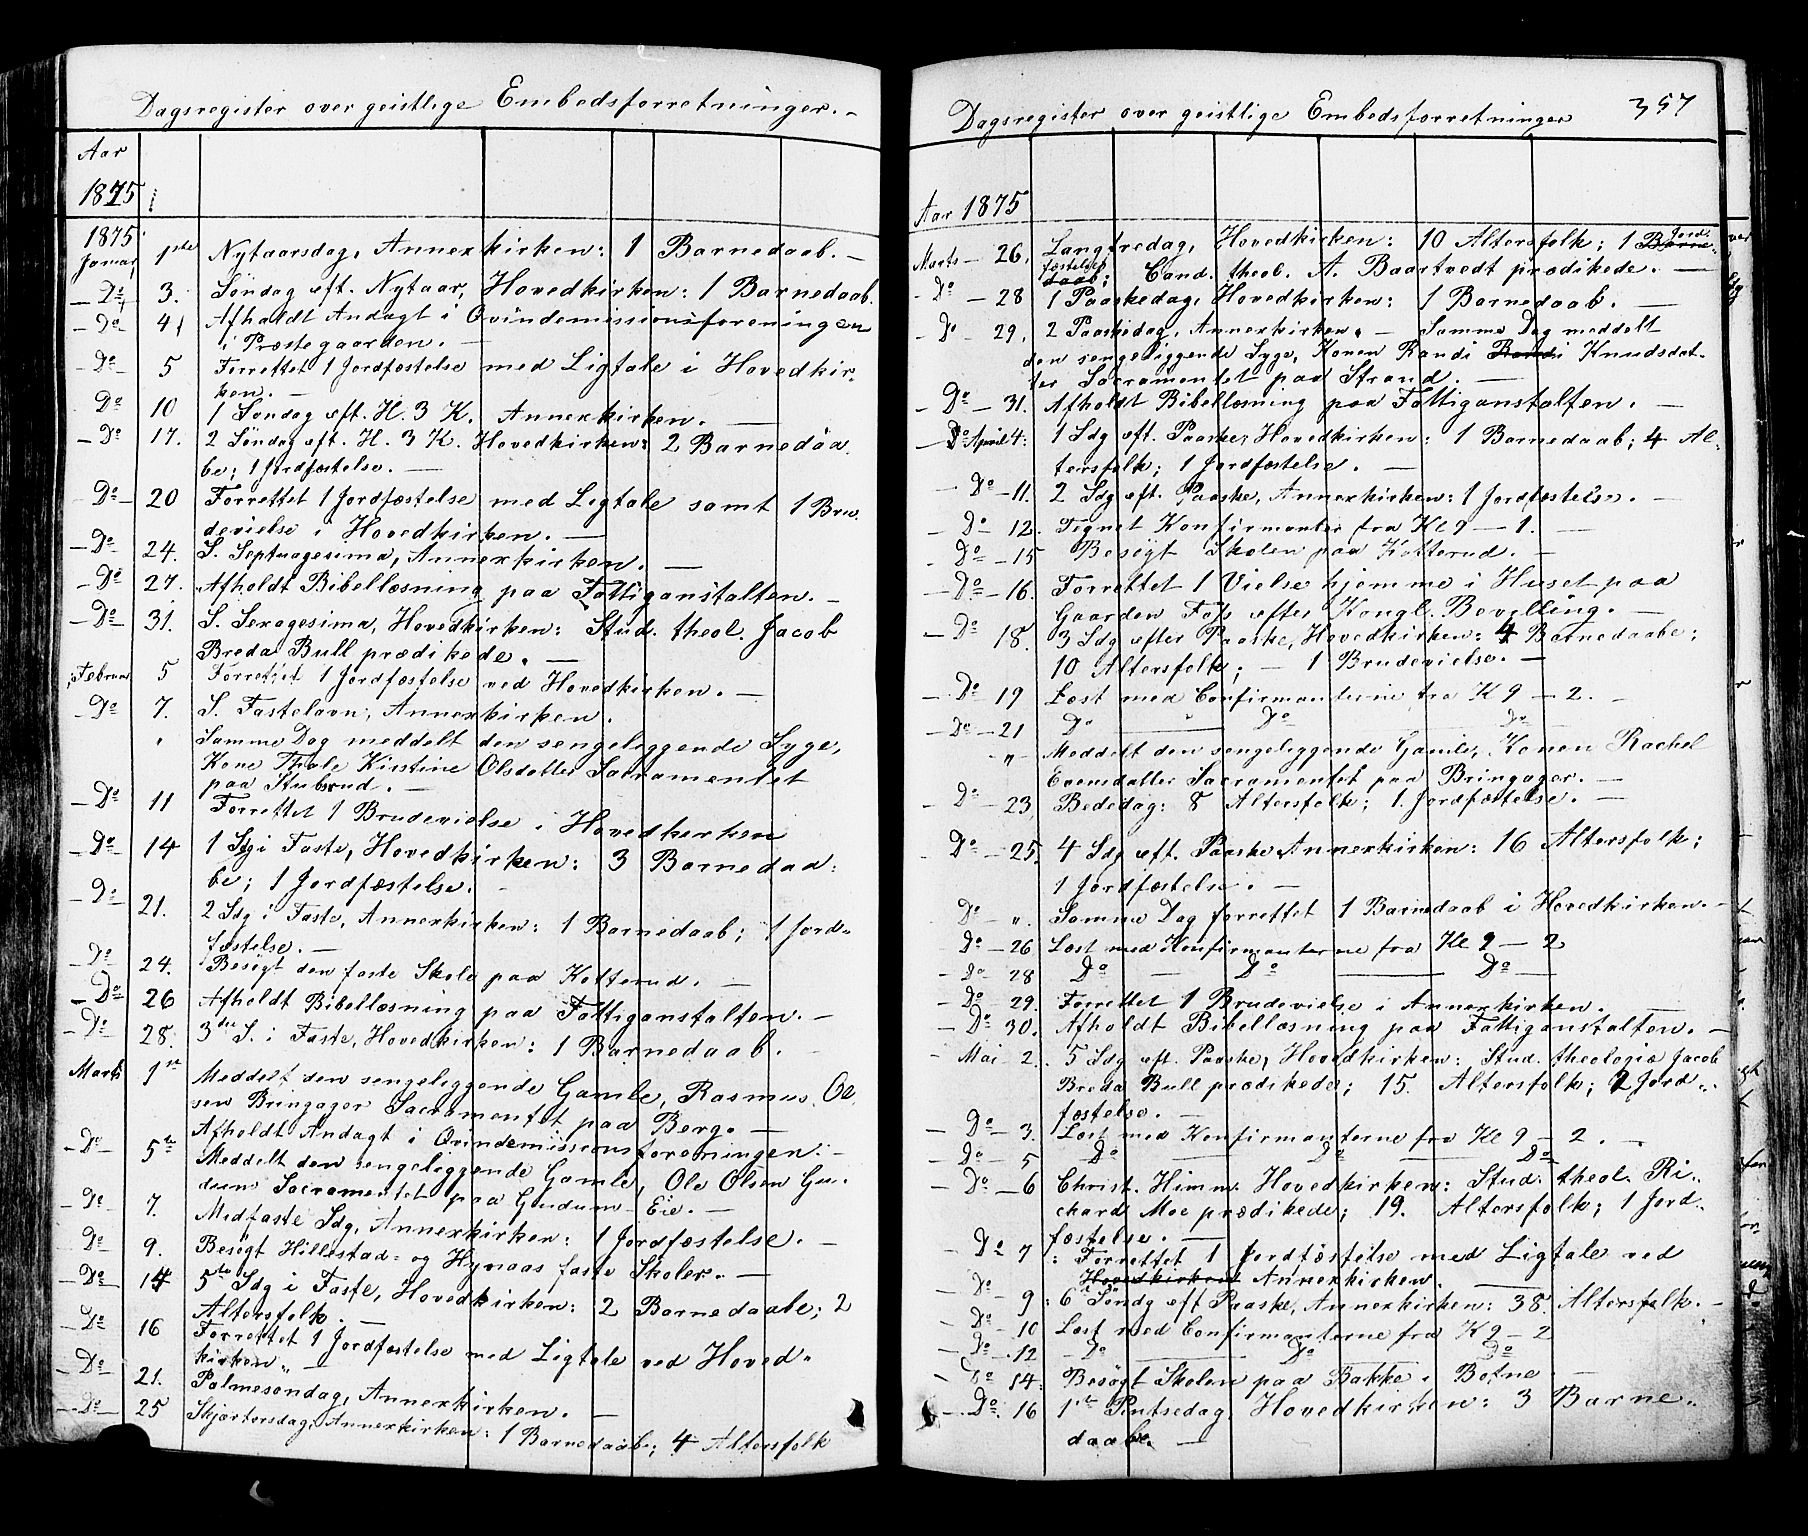 Dagsregister over geistlige Embedsforretninger.-
Aar
1875
1875
Januar 1ste Nytaarsdag, Annexkirken: 1 Barnedaab.-
Do 3. Søndag eft. Nytaar, Hovedkirken: 1 Barnedaab.
Do 4 Afholdt Andagt i Qvindemissionsforeningen
i Præstegaarden.-
Do 5 Forrettet 1 Jordfæstelse med Ligtale i Hovedkir-
ken.-
Do 10 1 Søndag eft. H. 3 K. Annexkirken.-
Do 17. 2 Søndag eft. H. 3 K. Hovedkirken: 2 Barnedaa
be; 1 Jordfæstelse.-
Do 20 Forrettet 1 Jordfæstelse med Ligtale samt 1 Bru
devielse i Hovedkirken.-
Do 24. S. Septuagesima, Annexkirken.-
Do 27. Afholdt Bibellæsning paa Fattiganstalten.-
Do 31. S. Sexagesima, Hovedkirken: Stud. theol. Jacob
Breda Bull prædikede.-
Februar 5 Forrettet 1 Jordfæstelse ved Hovedkirken.-
Do 7. S. Fastelavn, Annexkirken.
" Samme Dag meddelt den sengeliggende Syge,
Kone Thale Kirstine Olsdatter Sacramentet
paa Stubsrud.-
Do 11 Forrettet 1 Brudevielse i Hovedkirken
Do 14 1 Sdg i Faste, Hovedkirken: 3 Barnedaa:
be; 1 Jordfæstelse.-
Do 21. 2 Sdg i Faste, Annexkirken: 1 Barnedaab; 1 Jord-
fæstelse.-
Do 24. Besøgt den faste Skole paa Kotterud.-
Do 26 Afholdt Bibellæsning paa Fattiganstalten.-
Do 28. 3die S. i Faste, Hovedkirken: 1 Barnedaab.-
Marts 1ste Meddelt den sengeliggende Gamle, Rasmus Ol
sen Bringager Sacramentet paa Berg.-
Afholdt Andagt i Qvindemissionsforeningen.-
Do 5te Meddelt den sengeliggende Gamle, Ole Olsen Gu-
dum Sacramentet paa Gudum-Eie.-
Do 7. Midfaste Sdg, Annexkirken: 1 Jordfæstelse.-
Do 9. Besøgt Hillestad- og Hynaas faste Skoler.-
Do 14 5te Sdg i Faste, Hovedkirken: 2 Barnedaabe; 2
Altersfolk.-
Do 16 Forrettet 1 Jordfæstelse med Ligtale ved Hoved-
kirken.-
Do 21. Palmesøndag, Annexkirken.-
Do 25 Skjærtorsdag, Annexkirken: 1 Barnedaab; 4 Altersfolk
Dagsregister over geistlige Embedsforretninger 357
Aar 1875
Marts 26. Langfredag, Hovedkirken: 10 Altersfolk; 1 Barne- Jord-
daab; fæstelse; Cand. theol. A. Baartvedt prædikede.-
Do 28 1 Paaskedag, Hovedkirken: 1 Barnedaab.-
Do 29. 2 Paaskedag, Annexkirken.- Samme Dag meddelt
den sengeliggende Syge, Konen Randi Randi Knudsdat-
ter Sacramentet paa Strand.-
Do 31. Afholdt Bibellæsning paa Fattiganstalten.-
Do April 4. 1 Sdg eft. Paaske, Hovedkirken: 1 Barnedaab; 4 Al-
tersfolk; 1 Jordfæstelse.-
Do 11. 2 Sdg eft. Paaske, Annexkirken: 1 Jordfæstelse.-
Do 12. Tegnet Konfirmanter fra Kl 9-1.-
Do 15 Besøgt Skolen paa Kotterud.-
Do 16. Forrettet 1 Vielse hjemme i Huset paa
Gaarden Fo efter Kongl. Bevilling.-
Do 18. 3 Sdg efter Paaske, Hovedkirken: 4 Barnedaabe;
10 Altersfolk; - 1 Brudevielse.-
Do 19 Læst med Confirmanterne fra K 9-2.
Do 21 Do Do Do
" Meddelt den sengeliggende Gamle, Konen Rachel
Evensdatter Sacramentet paa Bringager.-
Do 23 Bededag: 8 Altersfolk; 1 Jordfæstelse.-
Do 25. 4 Sdg eft. Paaske Annexkirken: 16 Altersfolk;
1 Jordfæstelse.-
Do " Samme Dag forrettet 1 Barnedaab i Hovedkirken.-
Do 26 Læst med Konfirmanterne fra Kl 9-2
Do 28 Do Do Do
Do 29. Forrettet 1 Brudevielse i Annexkirken.
Do 30. Afholdt Bibellæsning paa Fattiganstalten.-
Mai 2. 5 Sdg eft. Paaske, Hovedkirken: Stud. theologiæ Jacob
Breda Bull prædikede; 15. Altersfolk; 2 Jord-
fæstelse.-
Do 3. Læst med Konfirmanterne fra Kl 9-2.-
Do 5 Do Do Do
Do 6 Christ. Himm. Hovedkirken: Stud. theol. Ri-
chard Moe prædikede; 19. Altersfolk; 1 Jord-
fæstelse.-
Do 7 Forrettet 1 Jordfæstelse med Ligtale ved
Hovedkirken Annexkirken.
Do 9 6te Søndg eft Paaske, Annexkirken: 38. Altersfolk.-
Do 10 Læst med Confirmanterne fra K 9-2
Do 12 Do Do Do
Do 14 Besøgt Skolen paa Bakke i Botne
Do 16 1ste Pintsedag, Hovedkirken: 3 Barne-
daabe.-